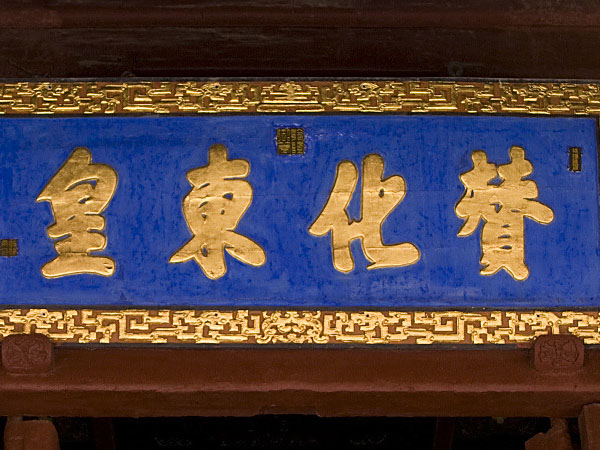 贊化東皇